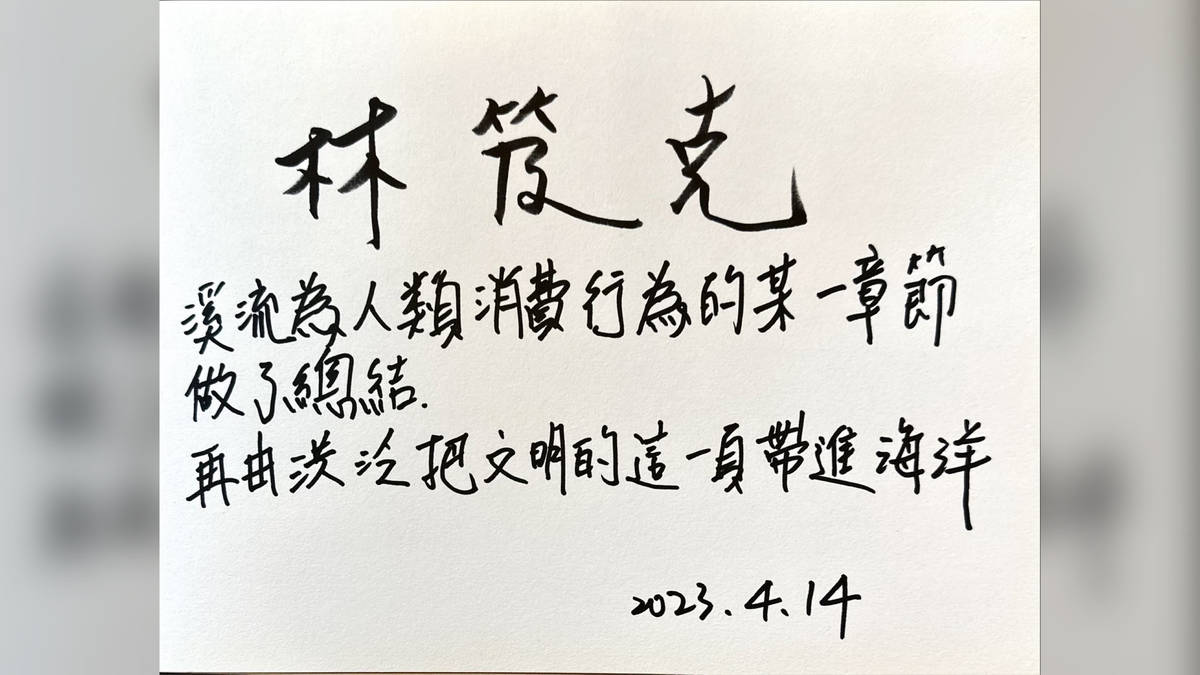 林笈克
溪流為人類消費行為的某一章節
做了總結.
再由洪泛把文明的這一頁帶進海洋
2023.4.14